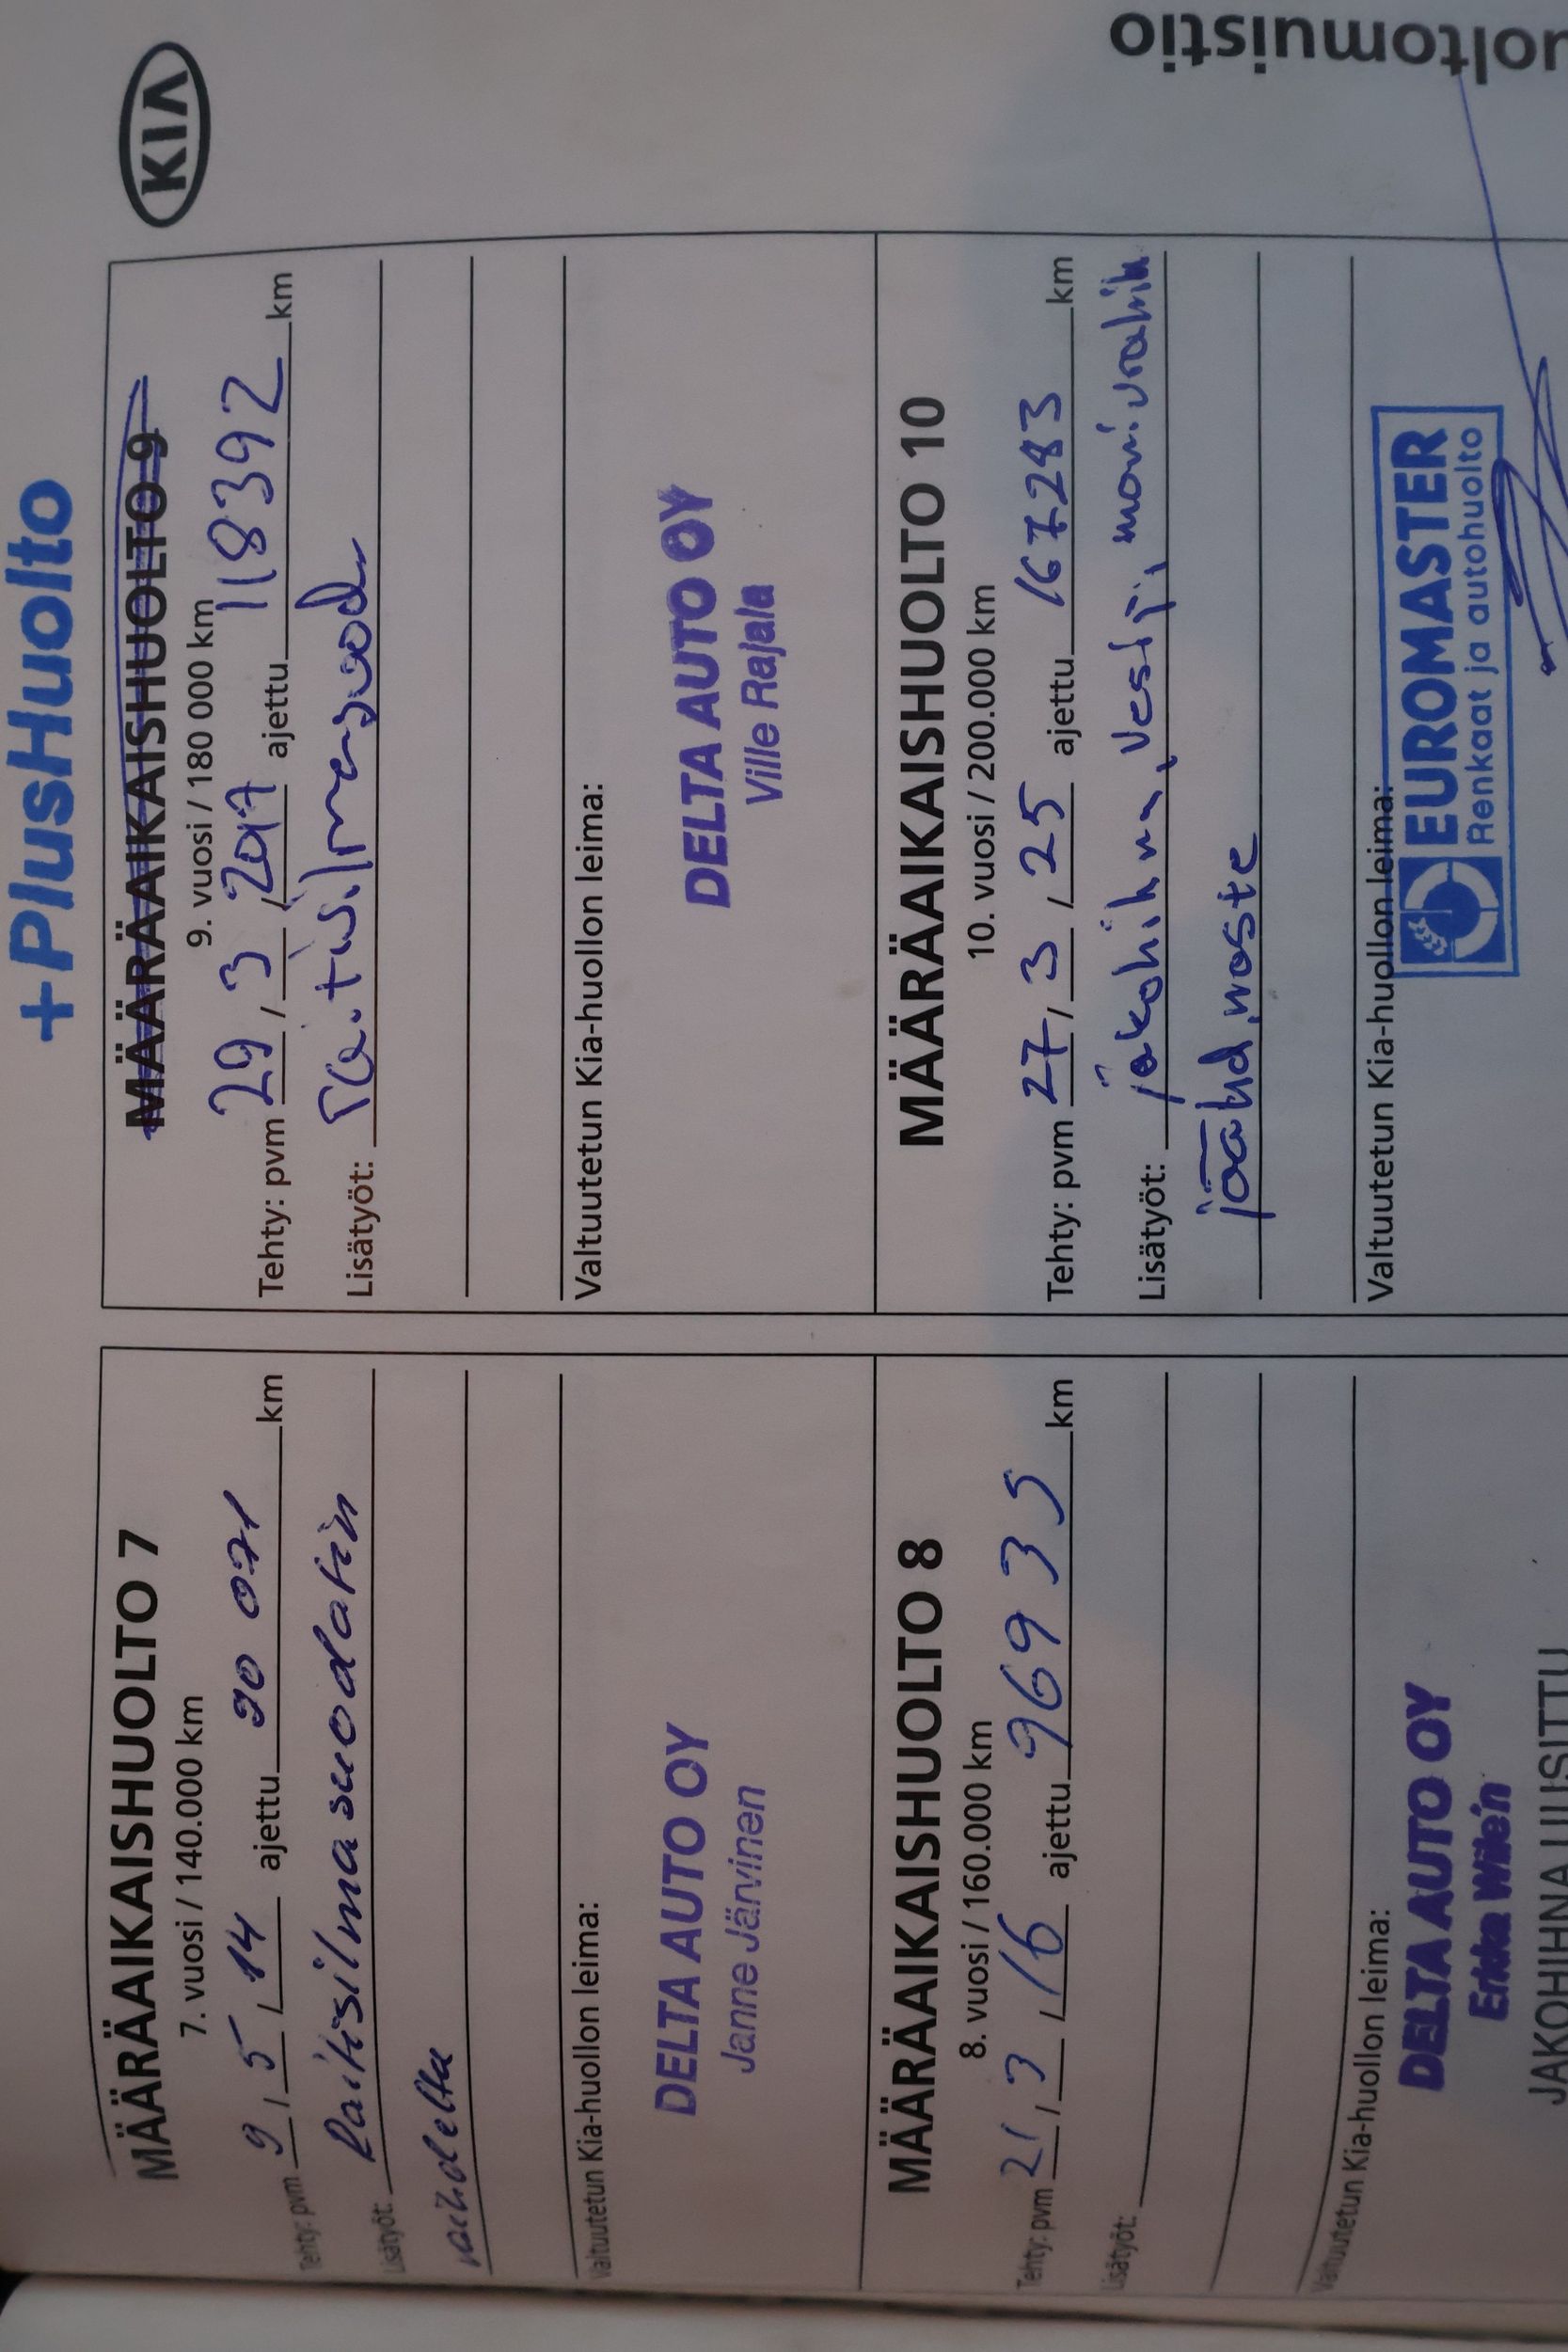 KIA
uoltomuistio
MÄÄRÄAIKAISHUOLTO 7
7. vuosi / 140.000 km
Tehty: pvm 9, 5, 14 ajettu 90 071 km
Lisätyöt: Raitisilmasuodatin
vaihdettu
Valtuutetun Kia-huollon leima:
DELTA AUTO OY
Janne Järvinen
MÄÄRÄAIKAISHUOLTO 8
8. vuosi / 160.000 km
Tehty: pvm 21, 3, 16 ajettu 96935 km
Lisätyöt:
Valtuutetun Kia-huollon leima:
DELTA AUTO OY
JAKOHIHNA UUSITTU
+PlusHuolto
MÄÄRÄAIKAISHUOLTO 9
9. vuosi / 180 000 km
Tehty: pvm 29, 3, 2017 ajettu 118392 km
Lisätyöt: Raitisilmasuod
Valtuutetun Kia-huollon leima:
DELTA AUTO OY
Ville Rajala
MÄÄRÄAIKAISHUOLTO 10
10. vuosi / 200.000 km
Tehty: pvm 27, 3, 25 ajettu 167283 km
Lisätyöt: jakohihna, vesip, moniurahih
jäähd.noste
Valtuutetun Kia-huollon leima:
EUROMASTER
Renkaat ja autohuolto